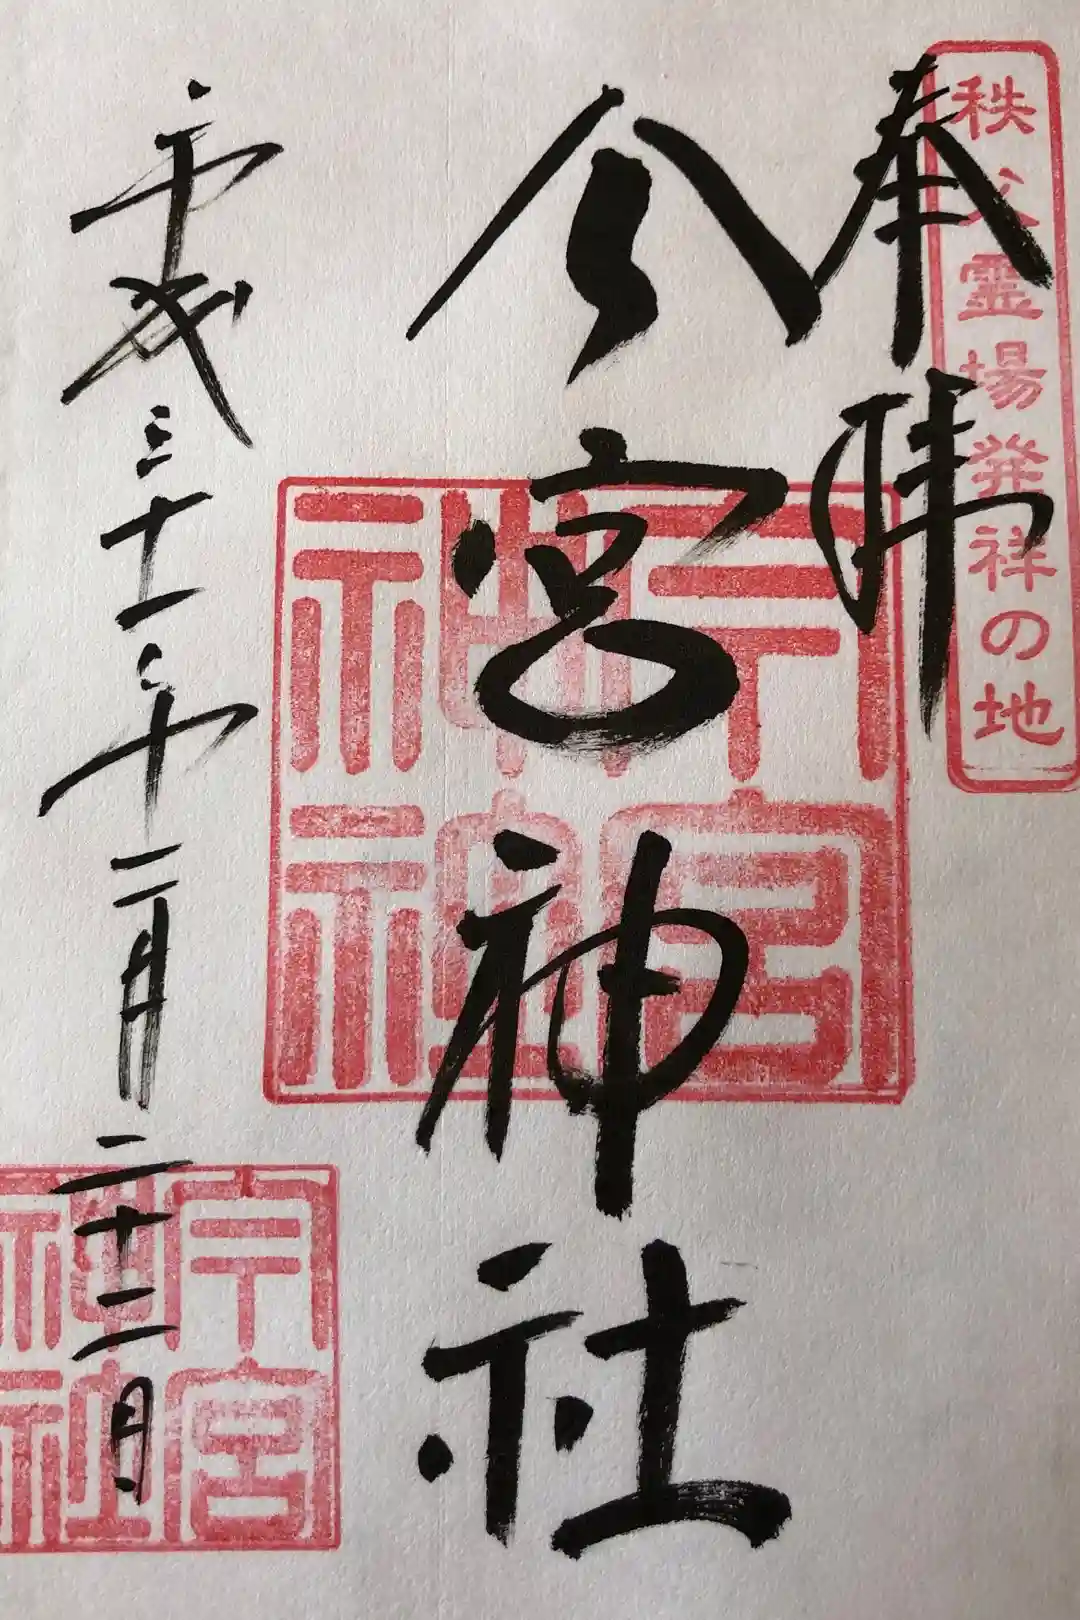 秩父霊場発祥の地
奉拝
今宮神社
今宮神社
平成三十一年二月二十二日
今宮神社